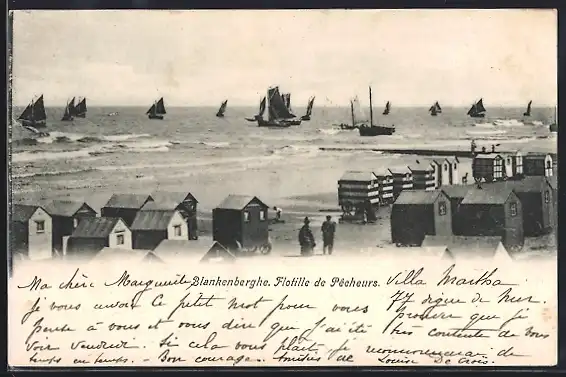 Blankenberghe. Flotille de Pêcheurs.
Villa Martha
Ma chère Marguerite
77 digue de Mer
je vous envoie ce petit mot pour vous prouver que je
pense à vous et vous dire que j'ai été très contente de vous
voir vendredi. Si cela vous plait je recommencerai de
temps en temps. - Bon courage. Amitiés de Louise De Crois.